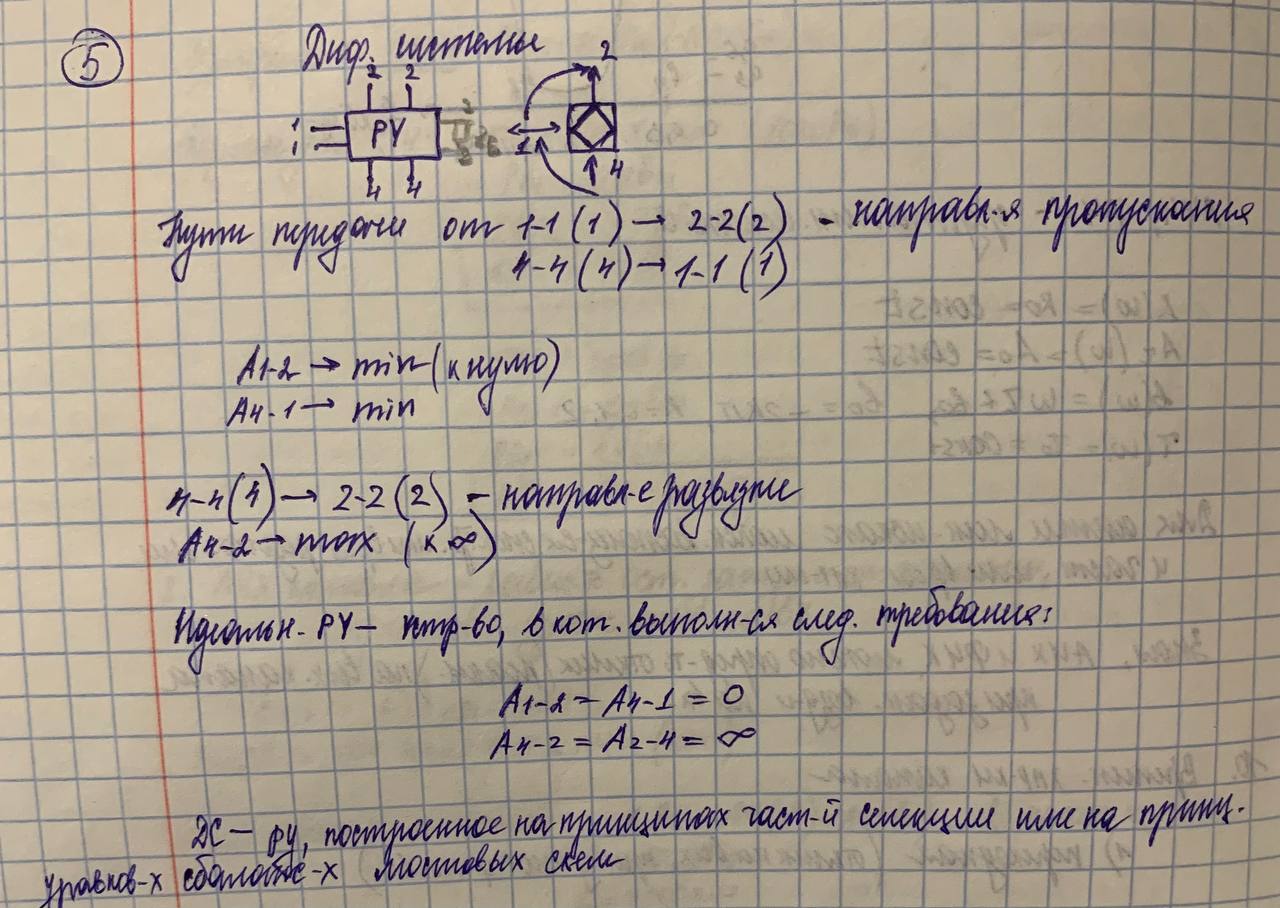 5
Диф. системы
2 2
2
1 РУ
1
4 4
1
4
Пути передачи от 1-1 (1) → 2-2 (2) - направл-я пропускания
4-4 (4) → 1-1 (1)
A1-2 → min (к нулю)
A4-1 → min
4-4 (4) → 2-2 (2) - направл-е развязки
A4-2 → max (к ∞)
Идеальн. РУ - устр-во, в кот. выполн-ся след. требования:
A1-2 = A4-1 = 0
A4-2 = A2-4 = ∞
ДС - РУ, построенное на принципах част-й селекции или на принц.
уравнов-х мостовых схем